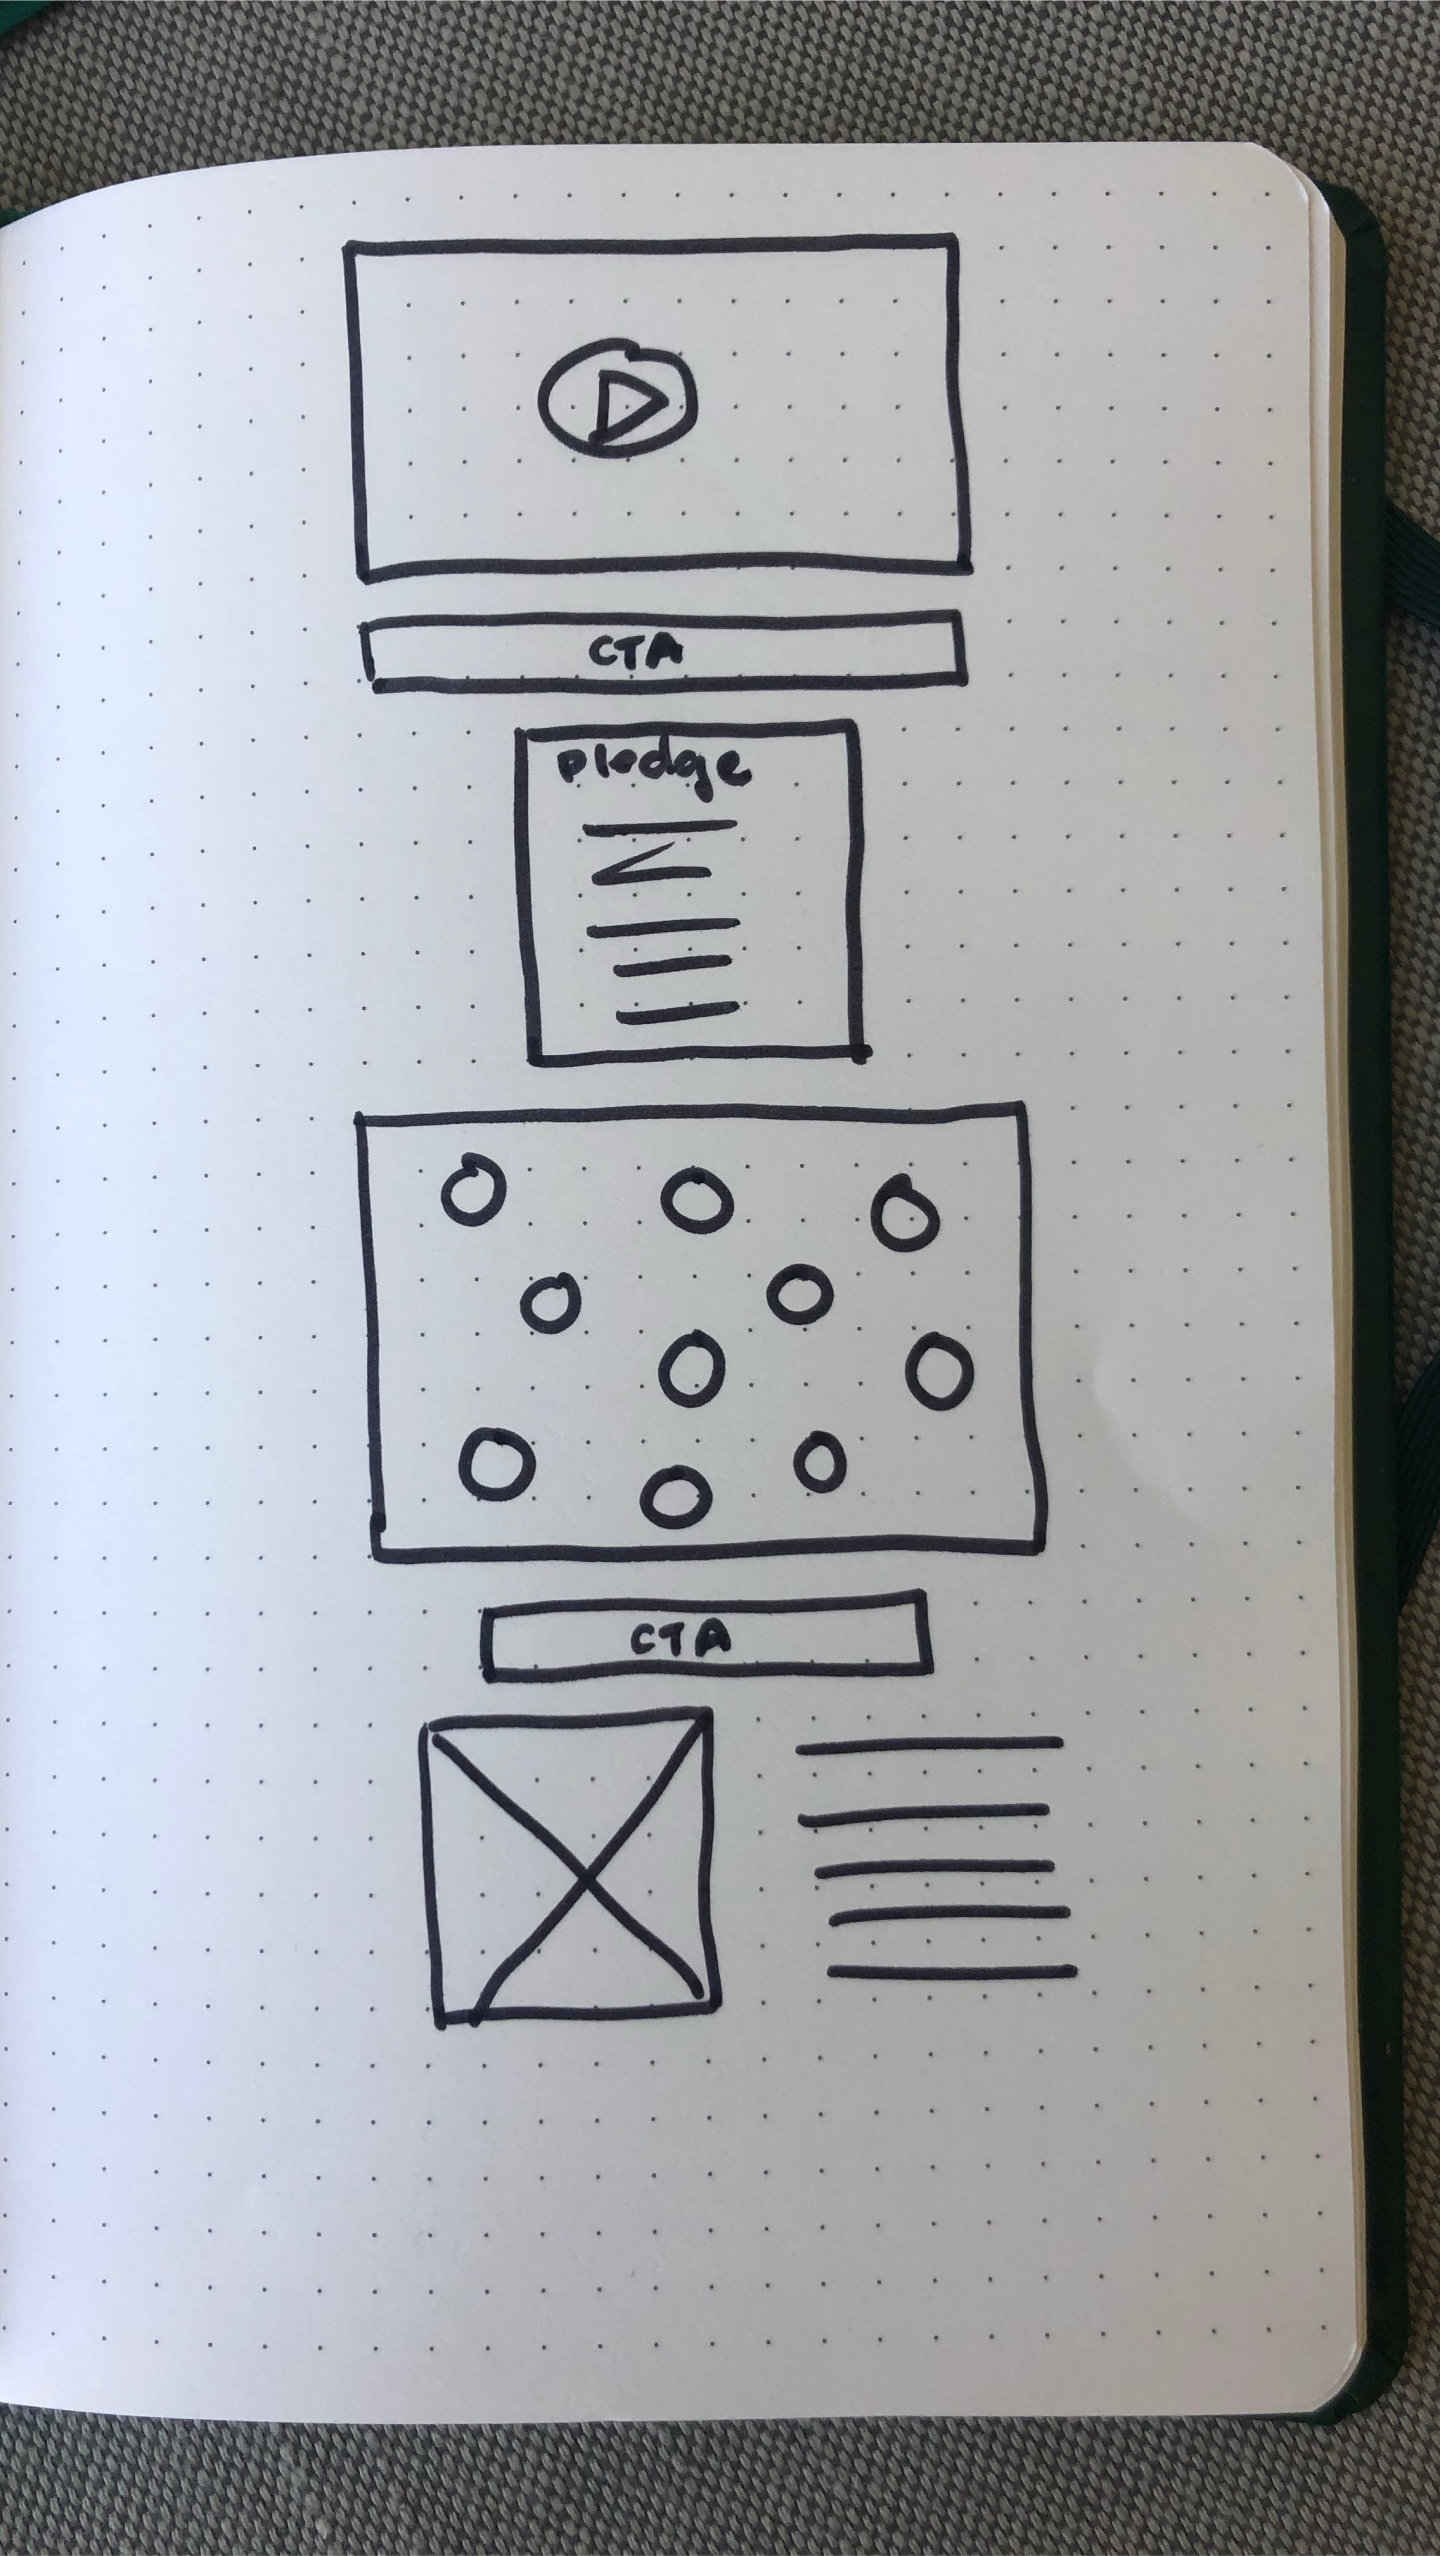 CTA
pledge
CTA